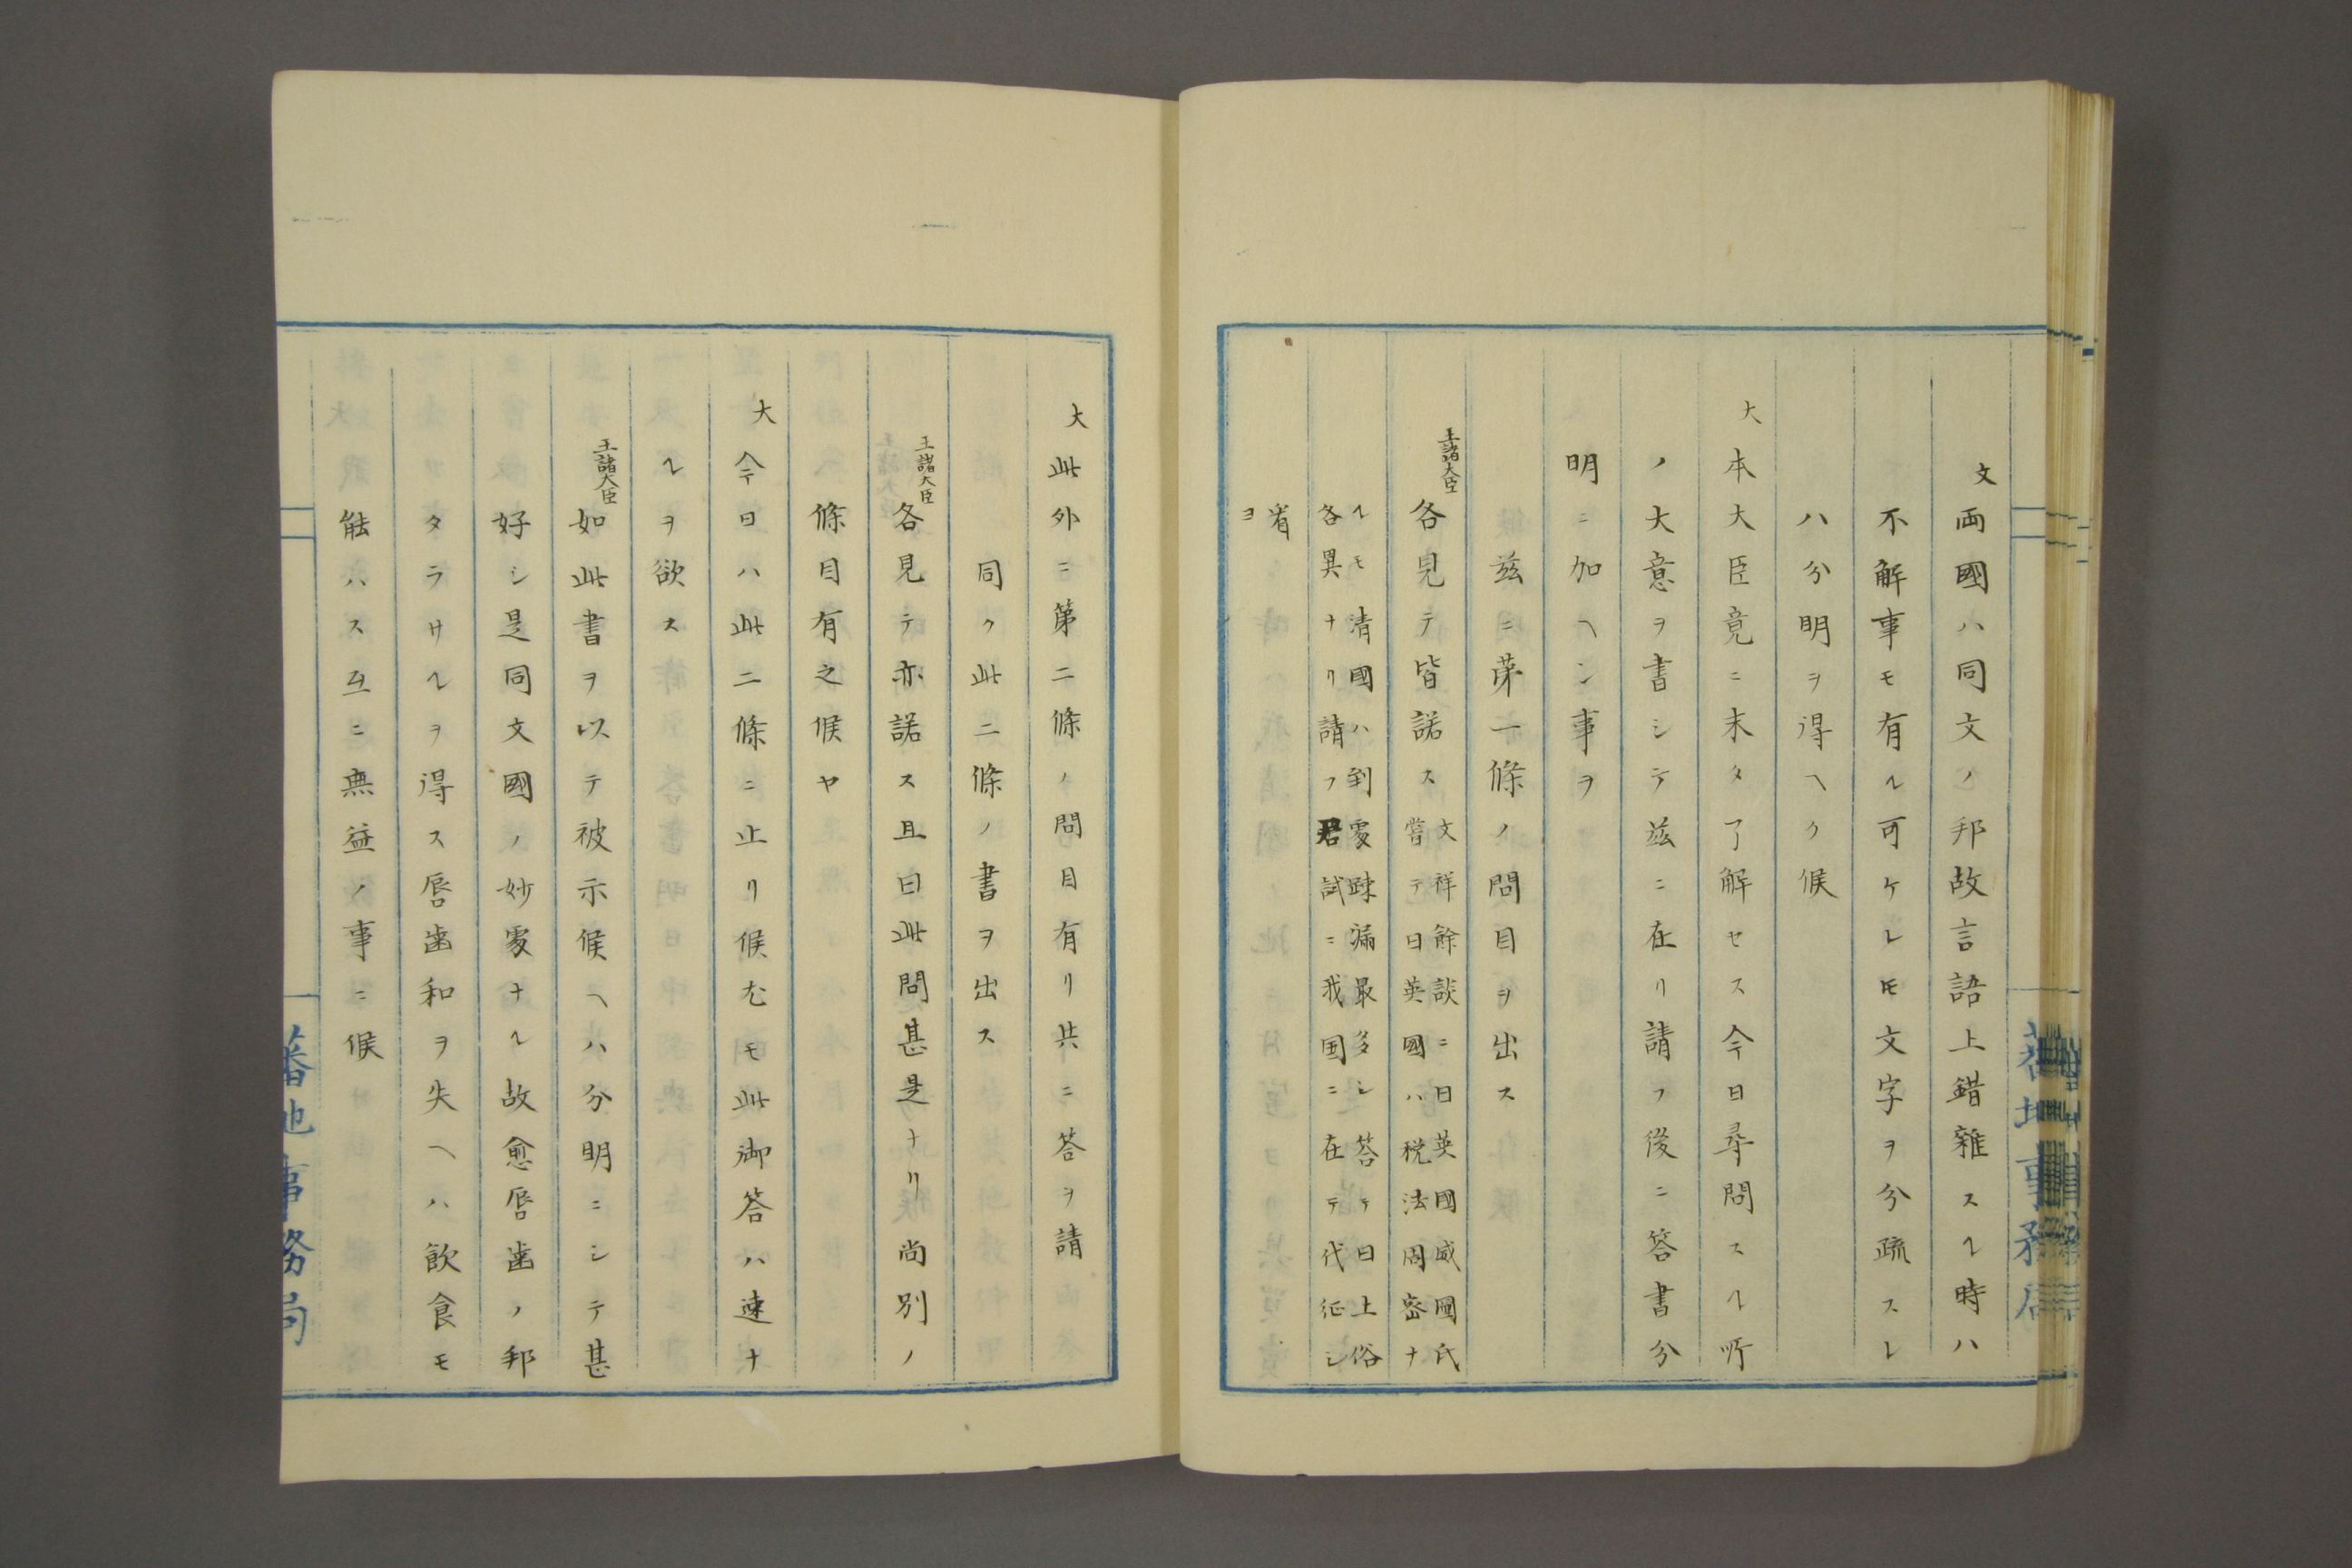 文 両國ハ同文ノ邦故言語上錯雜スル時ハ
不解事モ有ル可ケレ𪜈文字ヲ分疏スレ
ハ分明ヲ得ヘク候
大 本大臣竟ニ未タ了解セス今日尋問スル所
ノ大意ヲ書シテ茲ニ在リ請フ後ニ答書分
明ニ加ヘン事ヲ
茲ニ第一條ノ問目ヲ出ス
王諸大臣 各見テ皆諾ス
文祥餘談ニ曰英國威國氏
嘗テ曰英國ハ税法周密ナ
ルモ清國ハ到處疎漏最多シ答テ曰土俗
各異ナリ請フ君試ニ我国ニ在テ代征シ
省
ヨ
大 此外ニ第二條ノ問目有リ共ニ答ヲ請
同ク此二條ノ書ヲ出ス
王諸大臣 各見テ亦諾ス且曰此問甚是ナリ尚別ノ
條目有之候ヤ
大 今日ハ此二條ニ止リ候尤モ此御答ハ速ナ
ルヲ欲ス
王諸大臣 如此書ヲ以テ被示候ヘハ分明ニシテ甚
好シ是同文國ノ妙處ナル故愈唇歯ノ邦
タラサルヲ得ス唇歯和ヲ失ヘハ飲食モ
能ハス互ニ無益ノ事ニ候
蕃地事務局